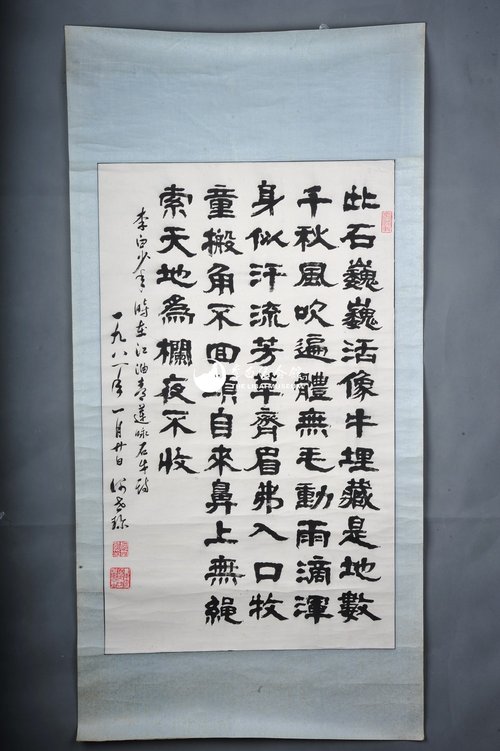 此石巍巍活像牛埋藏是地數
千秋風吹遍體無毛動雨滴渾
身似汗流芳草齊眉弗入口牧
童搬角不回頭自來鼻上無繩
索天地為欄夜不收
李白少年時在江油青蓮咏石牛詩
一九八八年一月廿日